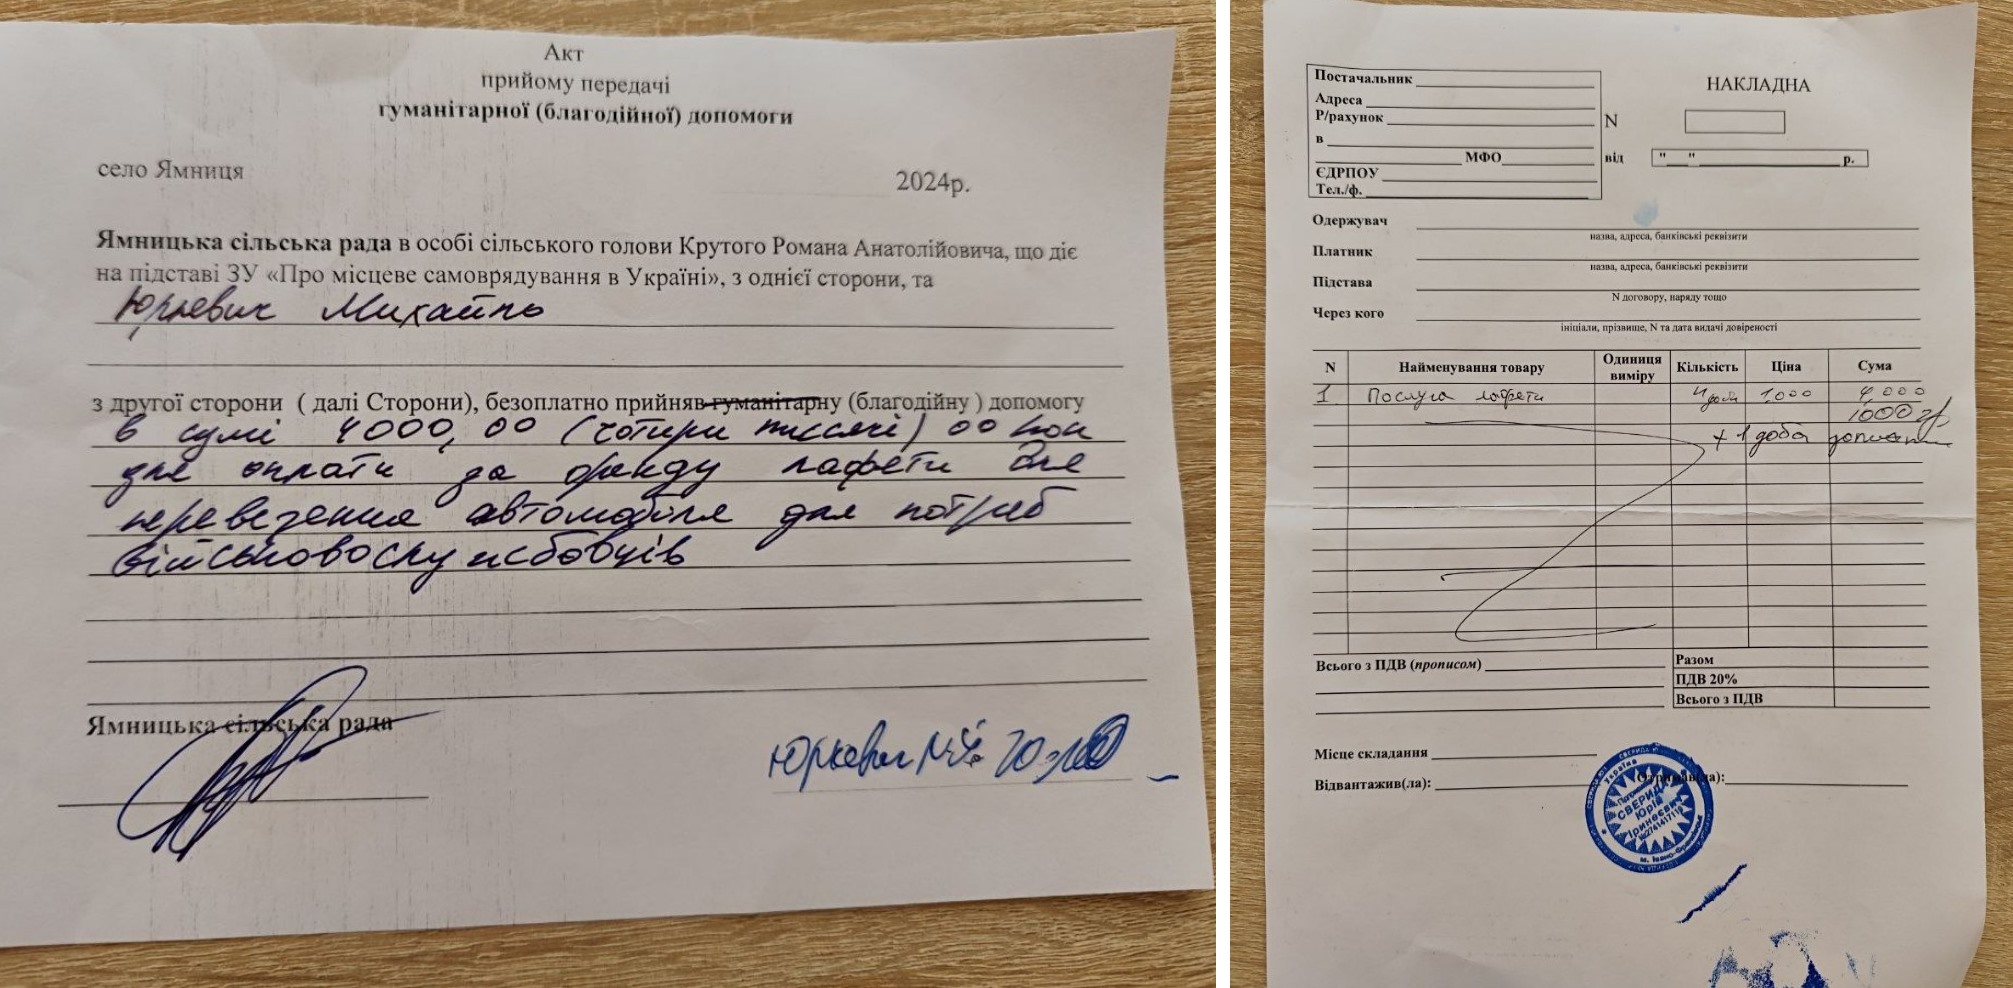 Акт
прийому передачі
гуманітарної (благодійної) допомоги
село Ямниця
2024р.
Ямницька сільська рада в особі сільського голови Крутого Романа Анатолійовича, що діє
на підставі ЗУ «Про місцеве самоврядування в Україні», з однієї сторони, та
Юркевич Михайло
з другої сторони ( далі Сторони), безоплатно прийняв гуманітарну (благодійну ) допомогу
в сумі 4000,00 (чотири тисячі) 00 коп
для оплати за оренду лафети для
перевезення автомобіля для потреб
військовослужбовців
Ямницька сільська рада
Юркевич
НАКЛАДНА
Постачальник
Адреса
Р/рахунок
в
МФО
ЄДРПОУ
Тел./ф.
N
від " " р.
Одержувач
назва, адреса, банківські реквізити
Платник
назва, адреса, банківські реквізити
Підстава
N договору, наряду тощо
Через кого
ініціали, прізвище, N та дата видачі довіреності
N Найменування товару Одиниця виміру Кількість Ціна Сума
1 Послуга лафети 4 доби 1000 4000
1000
+ 1 доба
Всього з ПДВ (прописом)
Разом
ПДВ 20%
Всього з ПДВ
Місце складання
Відвантажив(ла):
Отримав(ла):
Україна
СВЕРИДА
Юрій
Іринеєвич